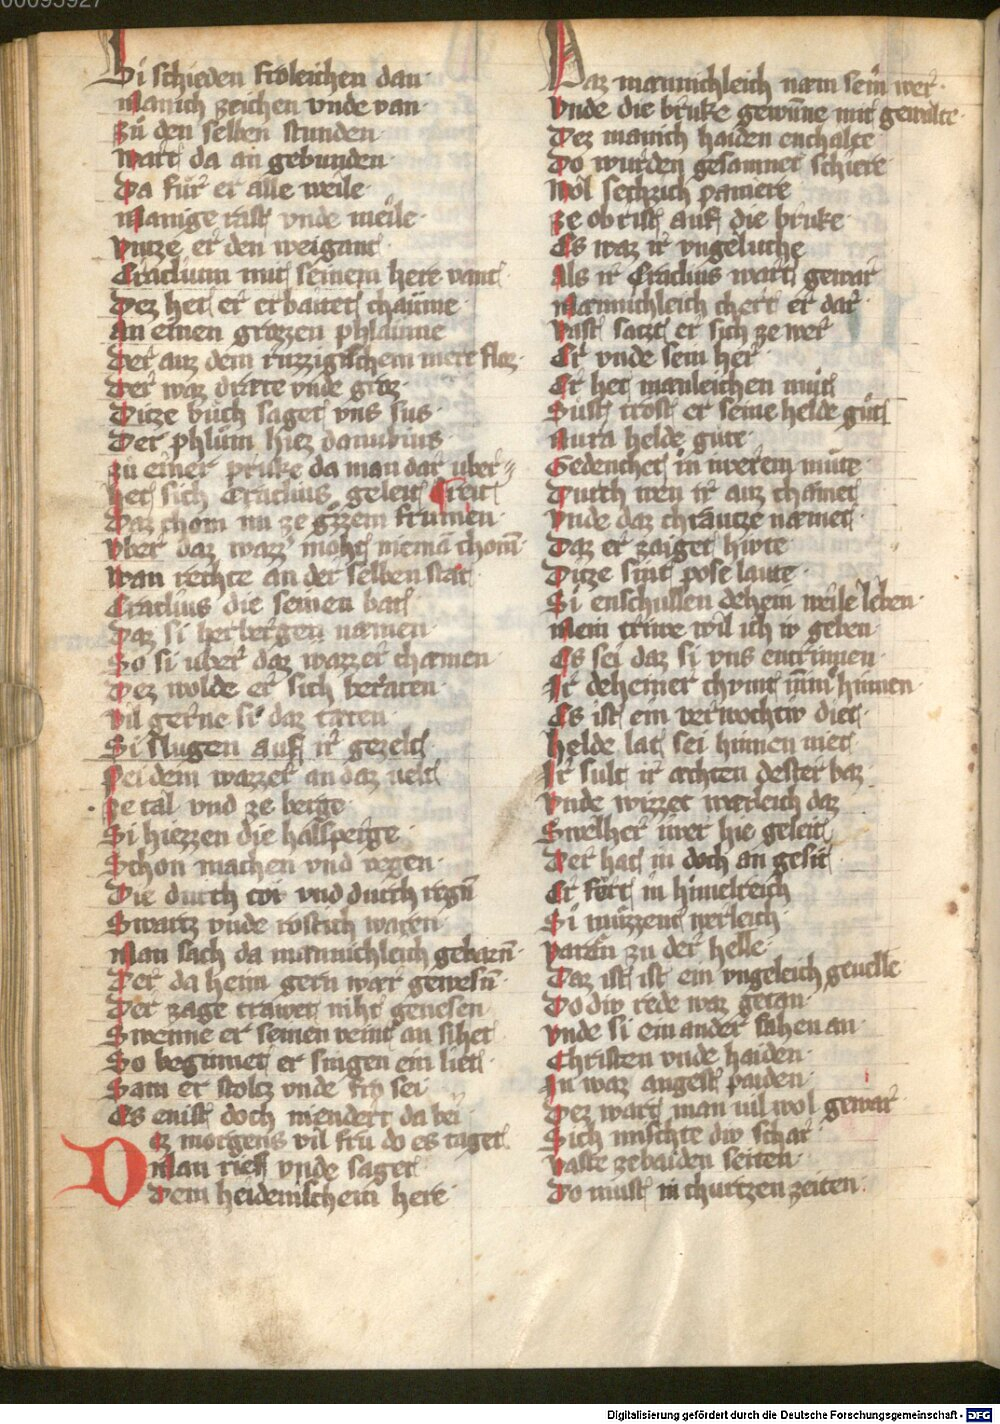 00095927
Si schieden frôleichen dan
Manich zeichen vnde van
Zů den selben stunden
Wart da an gebunden
Da fůr er alle weile
Manige rast vnde meile
Vntze er den weigant
Eraclium mit seinem here vant
Dez het er erbaitet chaůme
An einen grozzen phlaůme
Der auz dem ruzzigischem mere floz
Der waz dratte vnde groz
Ditze bůch saget vns sus
Der phlům hiez danubius
Zů einer pruke da man dar uber
Het sich Eraclius geleit streit
Daz chom nu ze grozzem frumen
Vber daz wazzer moht niemā chom̄
Wan rechte an der selben stat
Eraclius die seinen bat
Daz si herbergen namen
So si uber daz wazzer chamen
Dez wolde er sich beraten
Vil gerne si daz taten
Si slugen auf ir gezelt
Pei dem wazzer an daz uelt
Ze tal vnd ze berge
Si hiezzen die halsperge
Schon machen vnd vegen
Die durch tov vnd durch regn̄
Swartz vnde rostich waren
Man sach da mannichleich gebarn̄
Der da heim gern war gewesn̄
Der zage trawet niht genesen
Swenne er seinen veint an sihet
So beginnet er singen ein liet
Sam er stoltz vnde fro sei
Es enist doch niendert da bei
Dez morgens vil fru do es taget
Man rief vnde saget
Dem heidenischein here
Daz mannichleich nam sein wer
Vnde die bruke gewunne mit gewalte
Dez manich haiden enchalte
Do wurden gesamnet schiere
Wol sechzich paniere
Ze obrist auf die bruke
Es waz ir vngeluche
Als ir Eraclius wart gewar
Mannichleich chert er dar
Vast satzt er sich ze wer
Er vnde sein her
Er het manleichen můt
Sust trost er seine helde gůt
Nu ra helde gute
Gedenchet in iwerem mute
Durch wen ir auz chomet
Vnde daz chrautze nemet
Daz er zaiget hivte
Ditze sint pose laute
Si enschullen dehein weile leben
Mein triwe wil ich iv geben
Es sei daz si vns entrinnen
Ir deheiner chvmt nimmer hinnen
Es ist ein verwochtiv diet
Helde lat sei hinnen niet
Ir sult ir achten dester baz
Vnde wizzet werleich daz
Swelher iwer hie geleit
Der hat in doch an gesit
Er fort in himelreich
Si muzzent werleich
Varan zu der helle
Daz ist ist ein vngeleich geuelle
Do div rede waz getan
Vnde si ein ander sahen an
Christen vnde haiden
In waz angest paiden
Dez wart man uil wol gewar
Sich mischte div schar
Vaste zebaiden seiten
Do must in churtzen zeiten
Digitalisierung gefördert durch die Deutsche Forschungsgemeinschaft - DFG